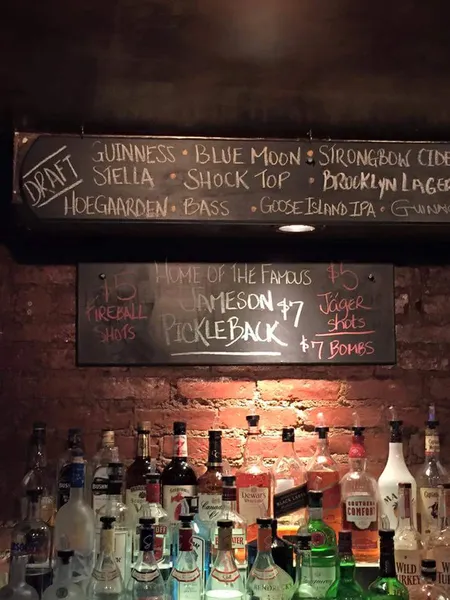 DRAFT
GUINNESS • BLUE MOON • STRONGBOW CIDE
STELLA • SHOCK TOP • BROOKLYN LAGER
HOEGAARDEN • BASS • GOOSE ISLAND IPA •
HOME OF THE FAMOUS
JAMESON $7
PICKLEBACK
$5
FIREBALL
SHOTS
$5
Jäger
shots
$7 BOMBS
Dewar's
SOUTHERN
COMFORT
WILD
TURKEY